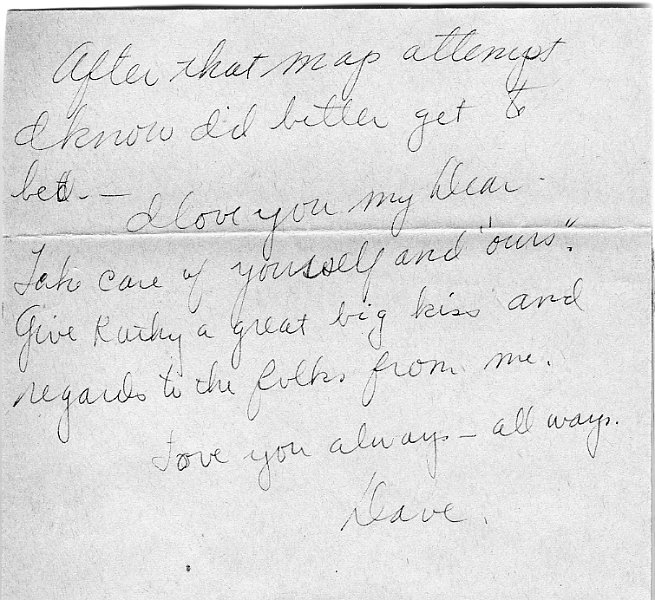 After that map attempt
I know I'd better get to
bed. —
I love you my Dear.
Take care of yourself and "ours".
Give Kathy a great big kiss and
regards to the folks from me.
Love you always — all ways.
Dave.